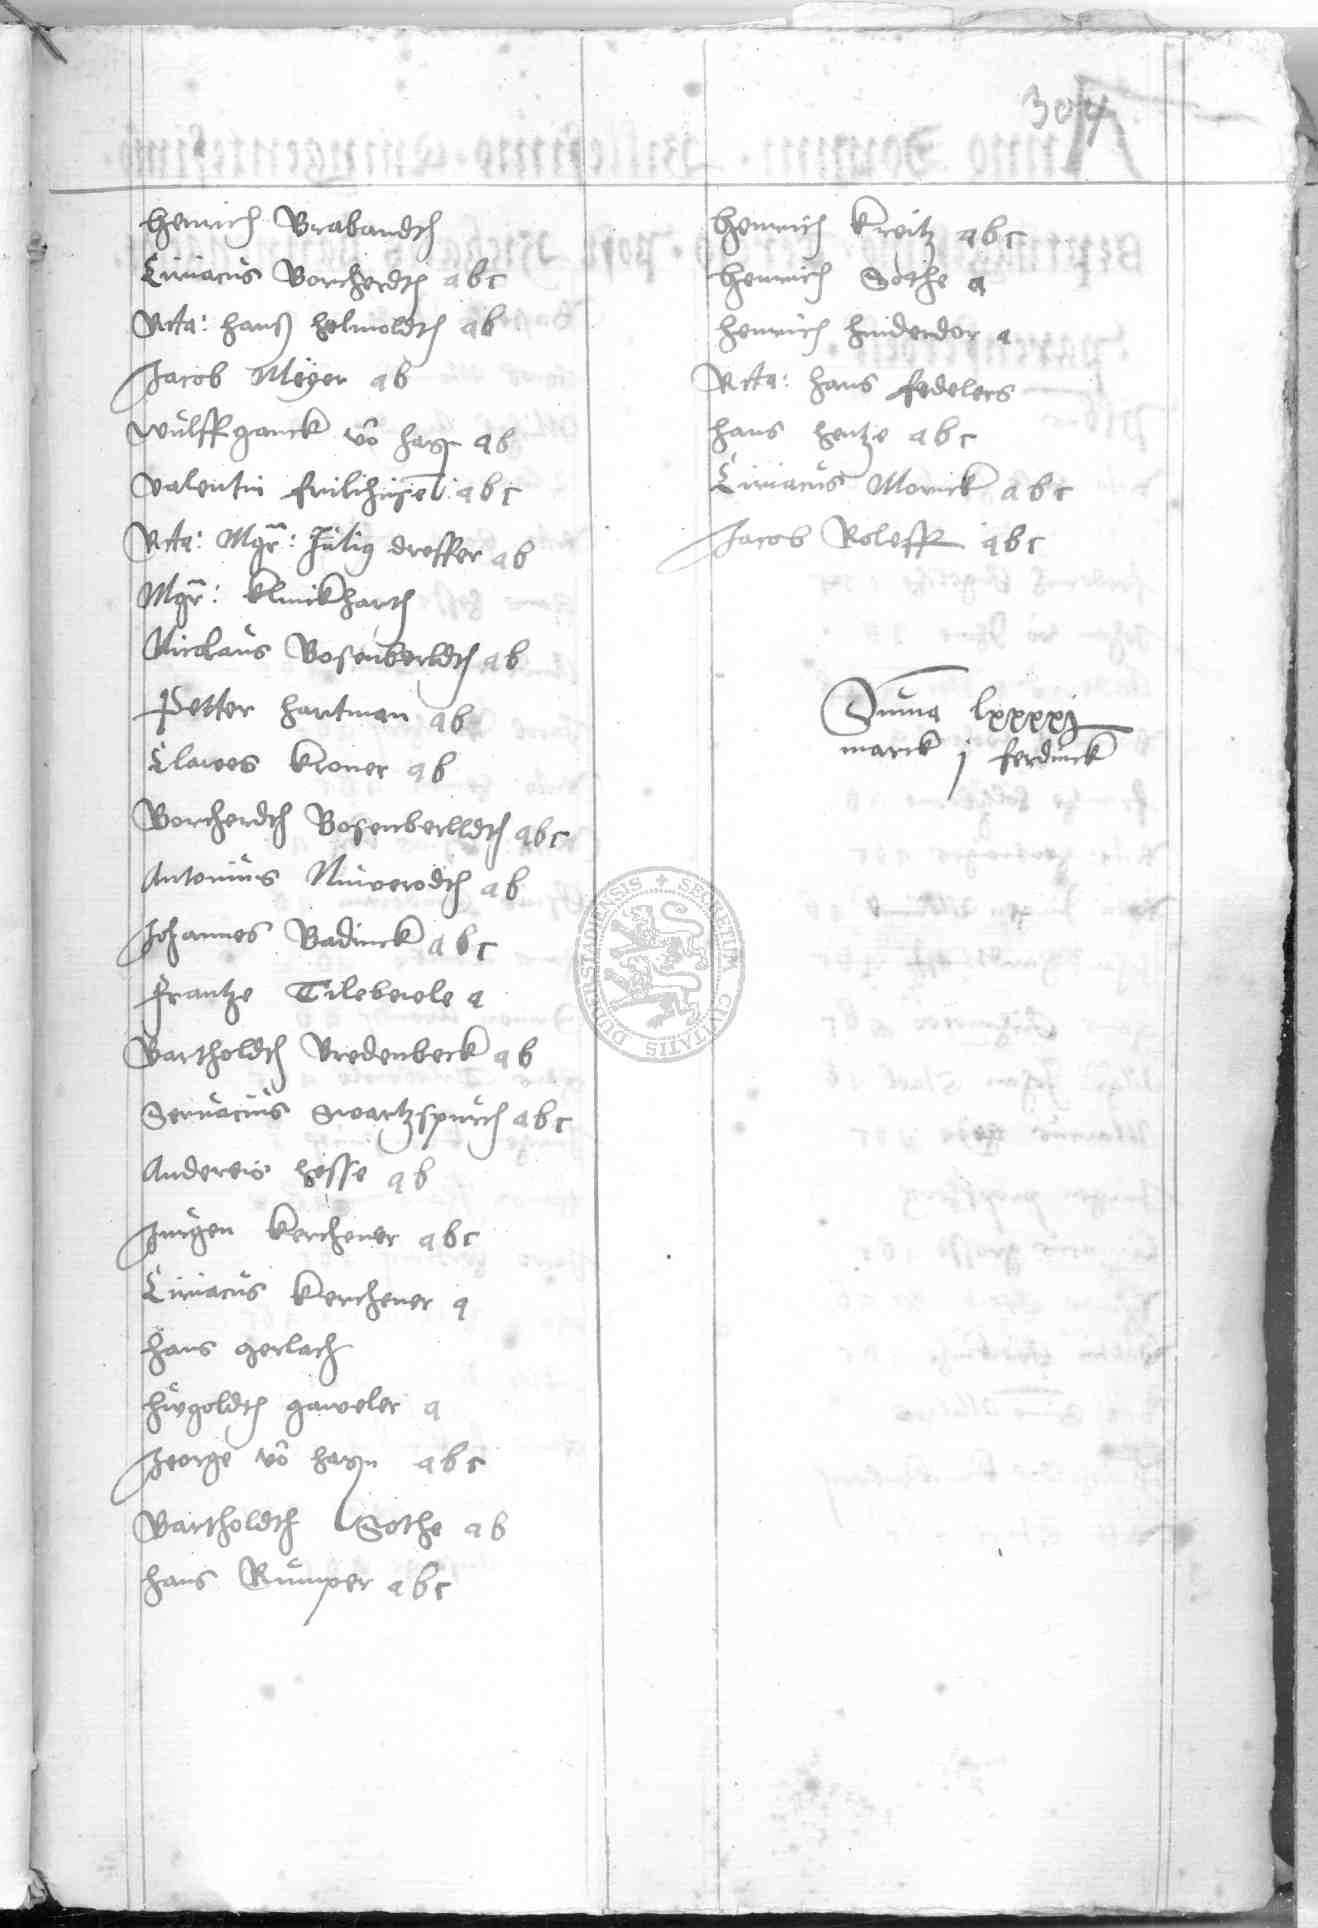 304
Henrich Brabandth
Ciriacus Borcherdth a b c
Rcta: Hans Helmoldth a b
Jacob Meyer a b
Wulffganck vo Hagn a b
Valentin a b c
Rcta: Mgr: Julig dreffer a b
Mgr: Klinickharth
Niclaus Bosenberldth a b
Petter Hartman a b
Clawes Kroner a b
Borcherdth Bosenberlldth a b c
Antonius Niuverodth a b
Johannes Badinck a b c
Frantze Tilebeiele a
Bartholdth Bredenbeck a b
Servacius Swartzspurch a b c
Andereis Hesse a b
Jurgen Kerchener a b c
Ciriacus Kerchener a
Hans Gerlach
Hugoldth gaweler a
Jeorge vo Hagn a b c
Bartholdth Sothe a b
Hans Rumper a b c
Henrich Kreitz a b c
Henrich Sothe a
Henrich Hinderdor a
Rcta: Hans Fedelers
Hans Hentze a b c
Ciriacus Monick a b c
Jacob Roleff a b c
Suma lxxxxj
marck j ferdinck
SECRETUM CIVITATIS DUDERSTADENSIS